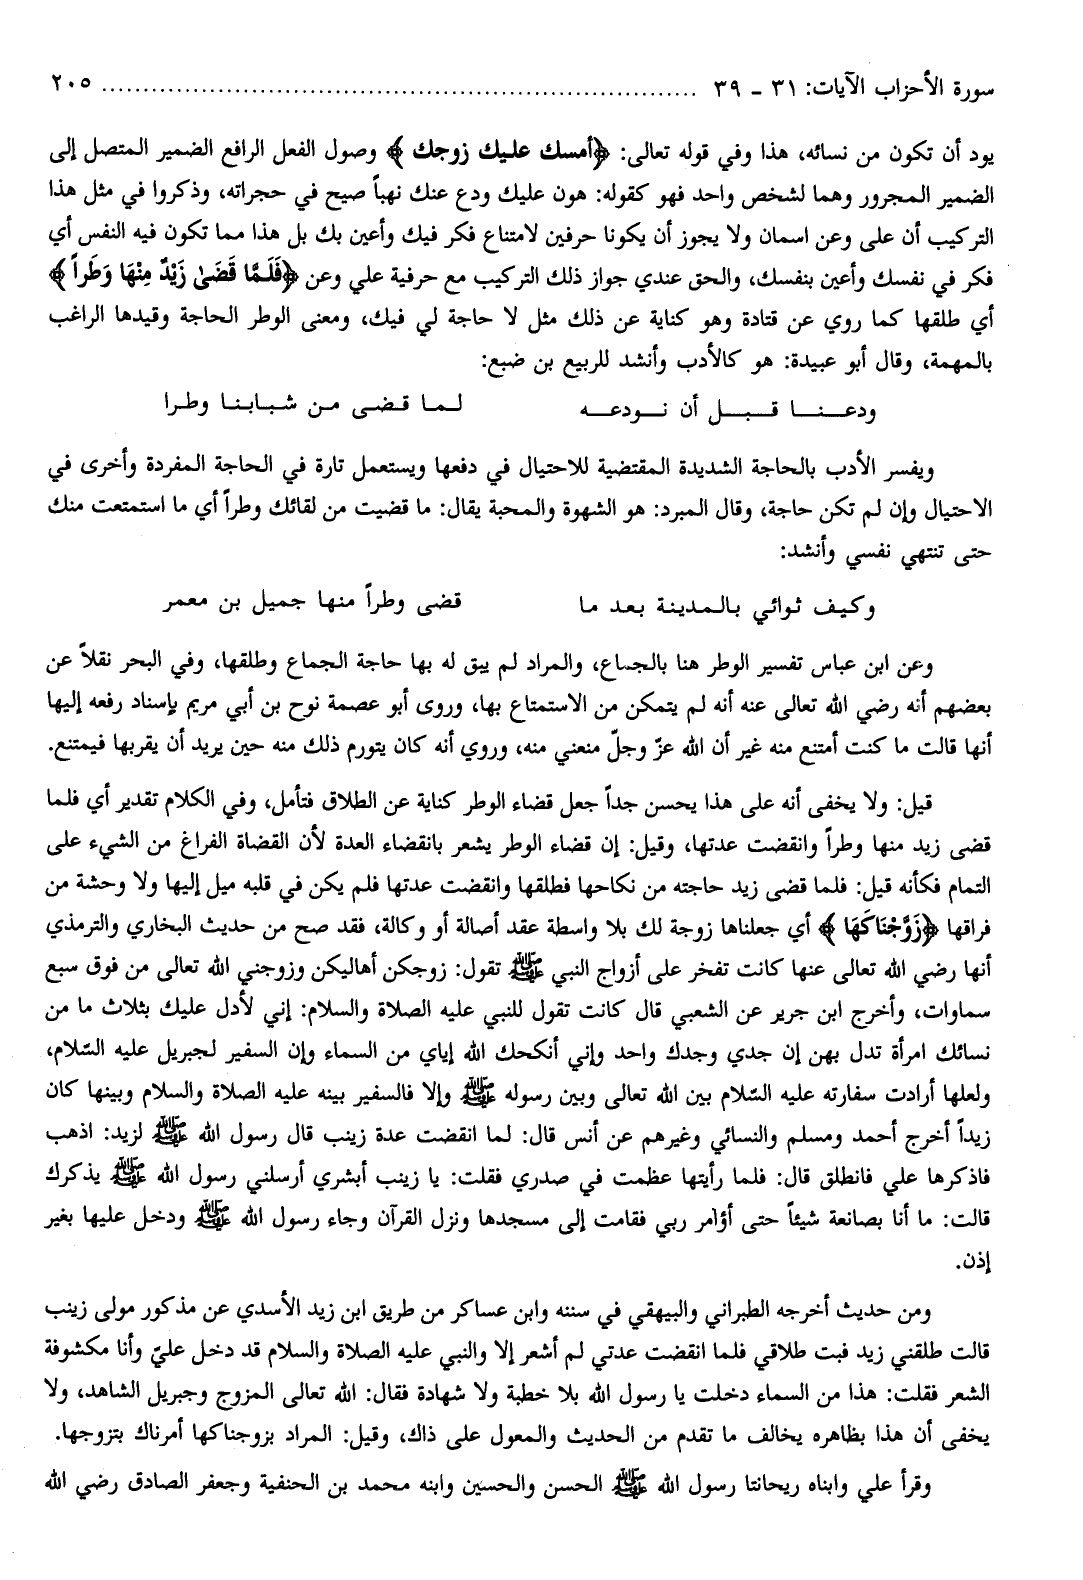 سورة الأحزاب الآيات: ٣١ - ٣٩ ........................................................................ ٢٠٥
يود أن تكون من نسائه، هذا وفي قوله تعالى: ﴿أمسك عليك زوجك﴾ وصول الفعل الرافع الضمير المتصل إلى
الضمير المجرور وهما لشخص واحد فهو كقوله: هون عليك ودع عنك نهباً صيح في حجراته، وذكروا في مثل هذا
التركيب أن على وعن اسمان ولا يجوز أن يكونا حرفين لامتناع فكر فيك وأعين بك بل هذا مما تكون فيه النفس أي
فكر في نفسك وأعين بنفسك، والحق عندي جواز ذلك التركيب مع حرفية علي وعن ﴿فَلَمَّا قَضَىٰ زَيْدٌ مِنْهَا وَطَراً﴾
أي طلقها كما روي عن قتادة وهو كناية عن ذلك مثل لا حاجة لي فيك، ومعنى الوطر الحاجة وقيدها الراغب
بالمهمة، وقال أبو عبيدة: هو كالأدب وأنشد للربيع بن ضبع:
ودعـنـا قـبـل أن نـودعـه لـمـا قـضـى مـن شـبـابـنـا وطـرا
ويفسر الأدب بالحاجة الشديدة المقتضية للاحتيال في دفعها ويستعمل تارة في الحاجة المفردة وأخرى في
الاحتيال وإن لم تكن حاجة، وقال المبرد: هو الشهوة والمحبة يقال: ما قضيت من لقائك وطراً أي ما استمتعت منك
حتى تنتهي نفسي وأنشد:
وكيف ثوائي بالمدينة بعد ما قضى وطراً منها جميل بن معمر
وعن ابن عباس تفسير الوطر هنا بالجماع، والمراد لم يبق له بها حاجة الجماع وطلقها، وفي البحر نقلاً عن
بعضهم أنه رضي الله تعالى عنه أنه لم يتمكن من الاستمتاع بها، وروى أبو عصمة نوح بن أبي مريم بإسناد رفعه إليها
أنها قالت ما كنت أمتنع منه غير أن الله عزّ وجلّ منعني منه، وروي أنه كان يتورم ذلك منه حين يريد أن يقربها فيمتنع.
قيل: ولا يخفى أنه على هذا يحسن جداً جعل قضاء الوطر كناية عن الطلاق فتأمل، وفي الكلام تقدير أي فلما
قضى زيد منها وطراً وانقضت عدتها، وقيل: إن قضاء الوطر يشعر بانقضاء العدة لأن القضاة الفراغ من الشيء على
التمام فكأنه قيل: فلما قضى زيد حاجته من نكاحها فطلقها وانقضت عدتها فلم يكن في قلبه ميل إليها ولا وحشة من
فراقها ﴿زَوَّجْنَاكَهَا﴾ أي جعلناها زوجة لك بلا واسطة عقد أصالة أو وكالة، فقد صح من حديث البخاري والترمذي
أنها رضي الله تعالى عنها كانت تفخر على أزواج النبي ﷺ تقول: زوجكن أهاليكن وزوجني الله تعالى من فوق سبع
سماوات، وأخرج ابن جرير عن الشعبي قال كانت تقول للنبي عليه الصلاة والسلام: إني لأدل عليك بثلاث ما من
نسائك امرأة تدل بهن إن جدي وجدك واحد وإني أنكحك الله إياي من السماء وإن السفير لجبريل عليه السّلام،
ولعلها أرادت سفارته عليه السّلام بين الله تعالى وبين رسوله ﷺ وإلا فالسفير بينه عليه الصلاة والسلام وبينها كان
زيداً أخرج أحمد ومسلم والنسائي وغيرهم عن أنس قال: لما انقضت عدة زينب قال رسول الله ﷺ لزيد: اذهب
فاذكرها علي فانطلق قال: فلما رأيتها عظمت في صدري فقلت: يا زينب أبشري أرسلني رسول الله ﷺ يذكرك
قالت: ما أنا بصانعة شيئاً حتى أؤامر ربي فقامت إلى مسجدها ونزل القرآن وجاء رسول الله ﷺ ودخل عليها بغير
إذن.
ومن حديث أخرجه الطبراني والبيهقي في سننه وابن عساكر من طريق ابن زيد الأسدي عن مذكور مولى زينب
قالت طلقني زيد فبت طلاقي فلما انقضت عدتي لم أشعر إلا والنبي عليه الصلاة والسلام قد دخل عليّ وأنا مكشوفة
الشعر فقلت: هذا من السماء دخلت يا رسول الله بلا خطبة ولا شهادة فقال: الله تعالى المزوج وجبريل الشاهد، ولا
يخفى أن هذا بظاهره يخالف ما تقدم من الحديث والمعول على ذاك، وقيل: المراد بزوجناكها أمرناك بتزوجها.
وقرأ علي وابناه ريحانتا رسول الله ﷺ الحسن والحسين وابنه محمد بن الحنفية وجعفر الصادق رضي الله